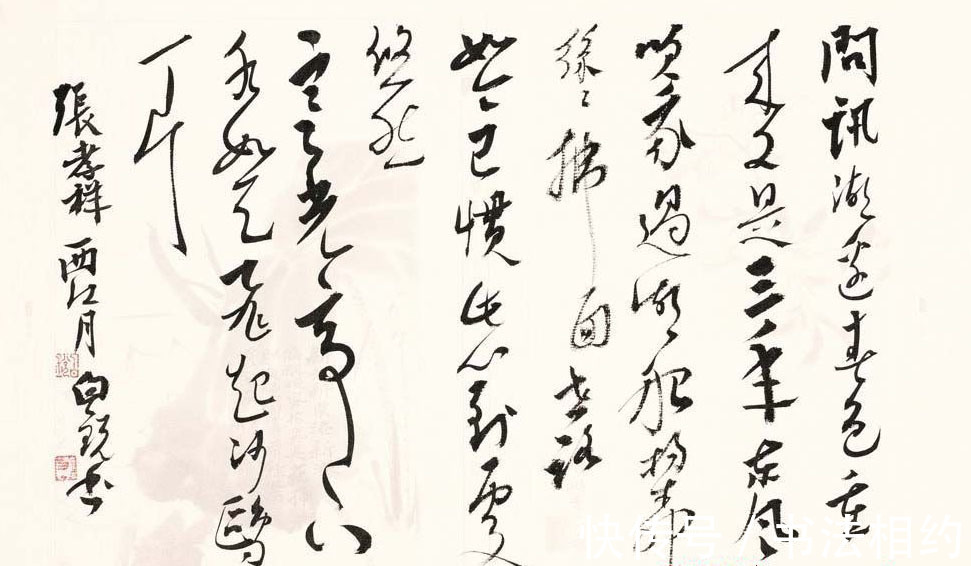 問訊湖邊春色重
来又是三年东风
吹我過湖船楊柳
絲絲拂面世路
如今已慣此心到處
悠然
寒光亭下
水如天飛起沙鷗
一片
張孝祥 西江月 白锐书
快传号 / 书法相约